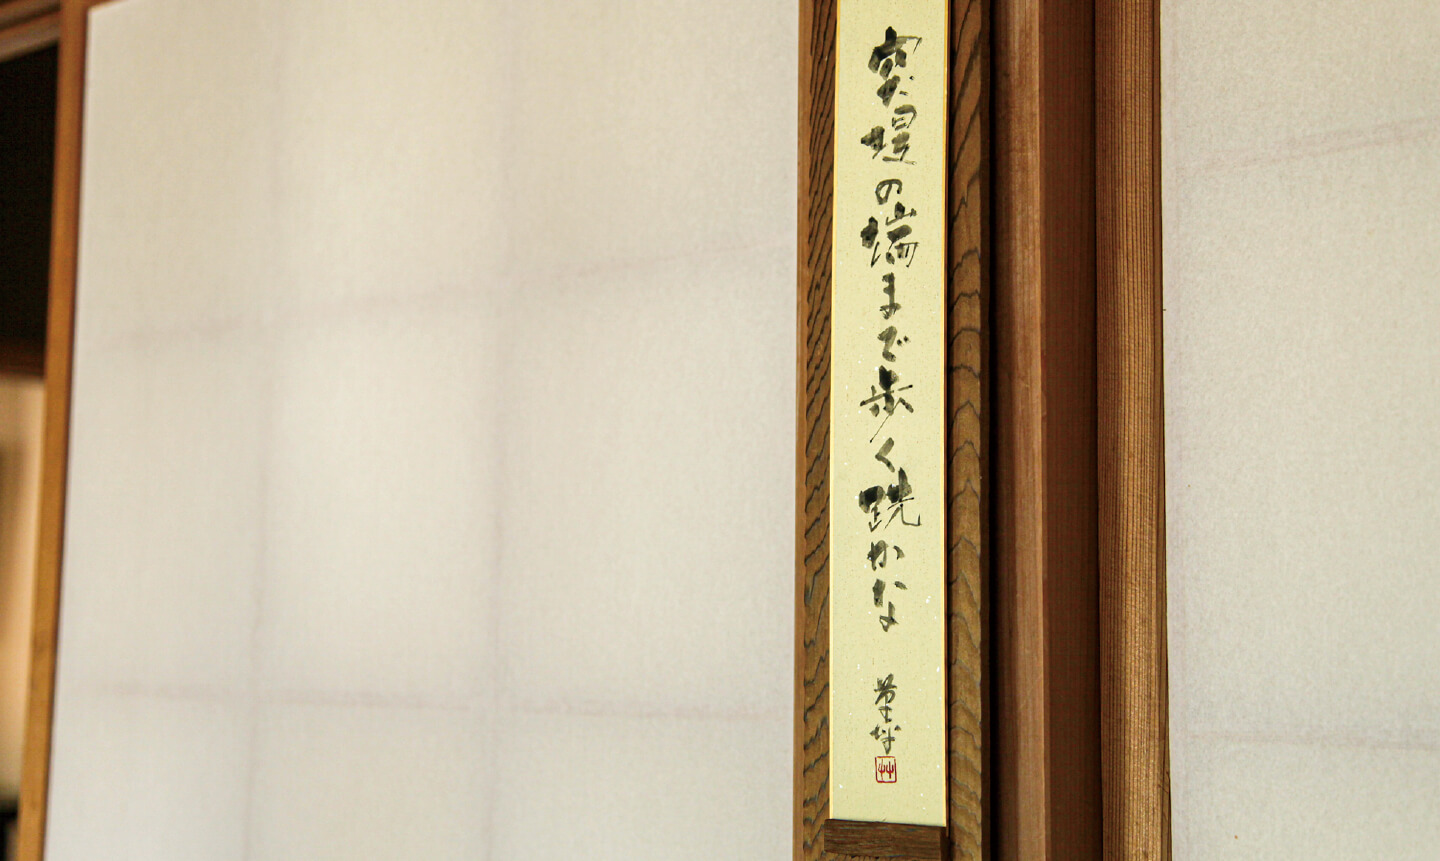 突堤の端まで歩く跣かな
艸